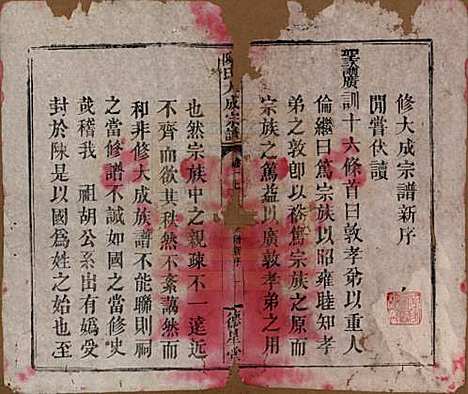 修大成宗譜新序
聞嘗伏讀
聖諭廣訓十六條首曰敦孝弟以重人
倫繼曰篤宗族以昭雍睦知孝
弟之敦卽以務篤宗族之原而
宗族之篤益以廣敦孝弟之用
陳氏大成宗譜
新序
德星堂
也然宗族中之親疎不一遠近
不齊而欲其秩然不紊藹然而
和非修大成族譜不能聯則祠
之當修譜不誠如國之當修史
哉稽我 祖胡公系出有嬀受
封於陳是以國爲姓之始也至